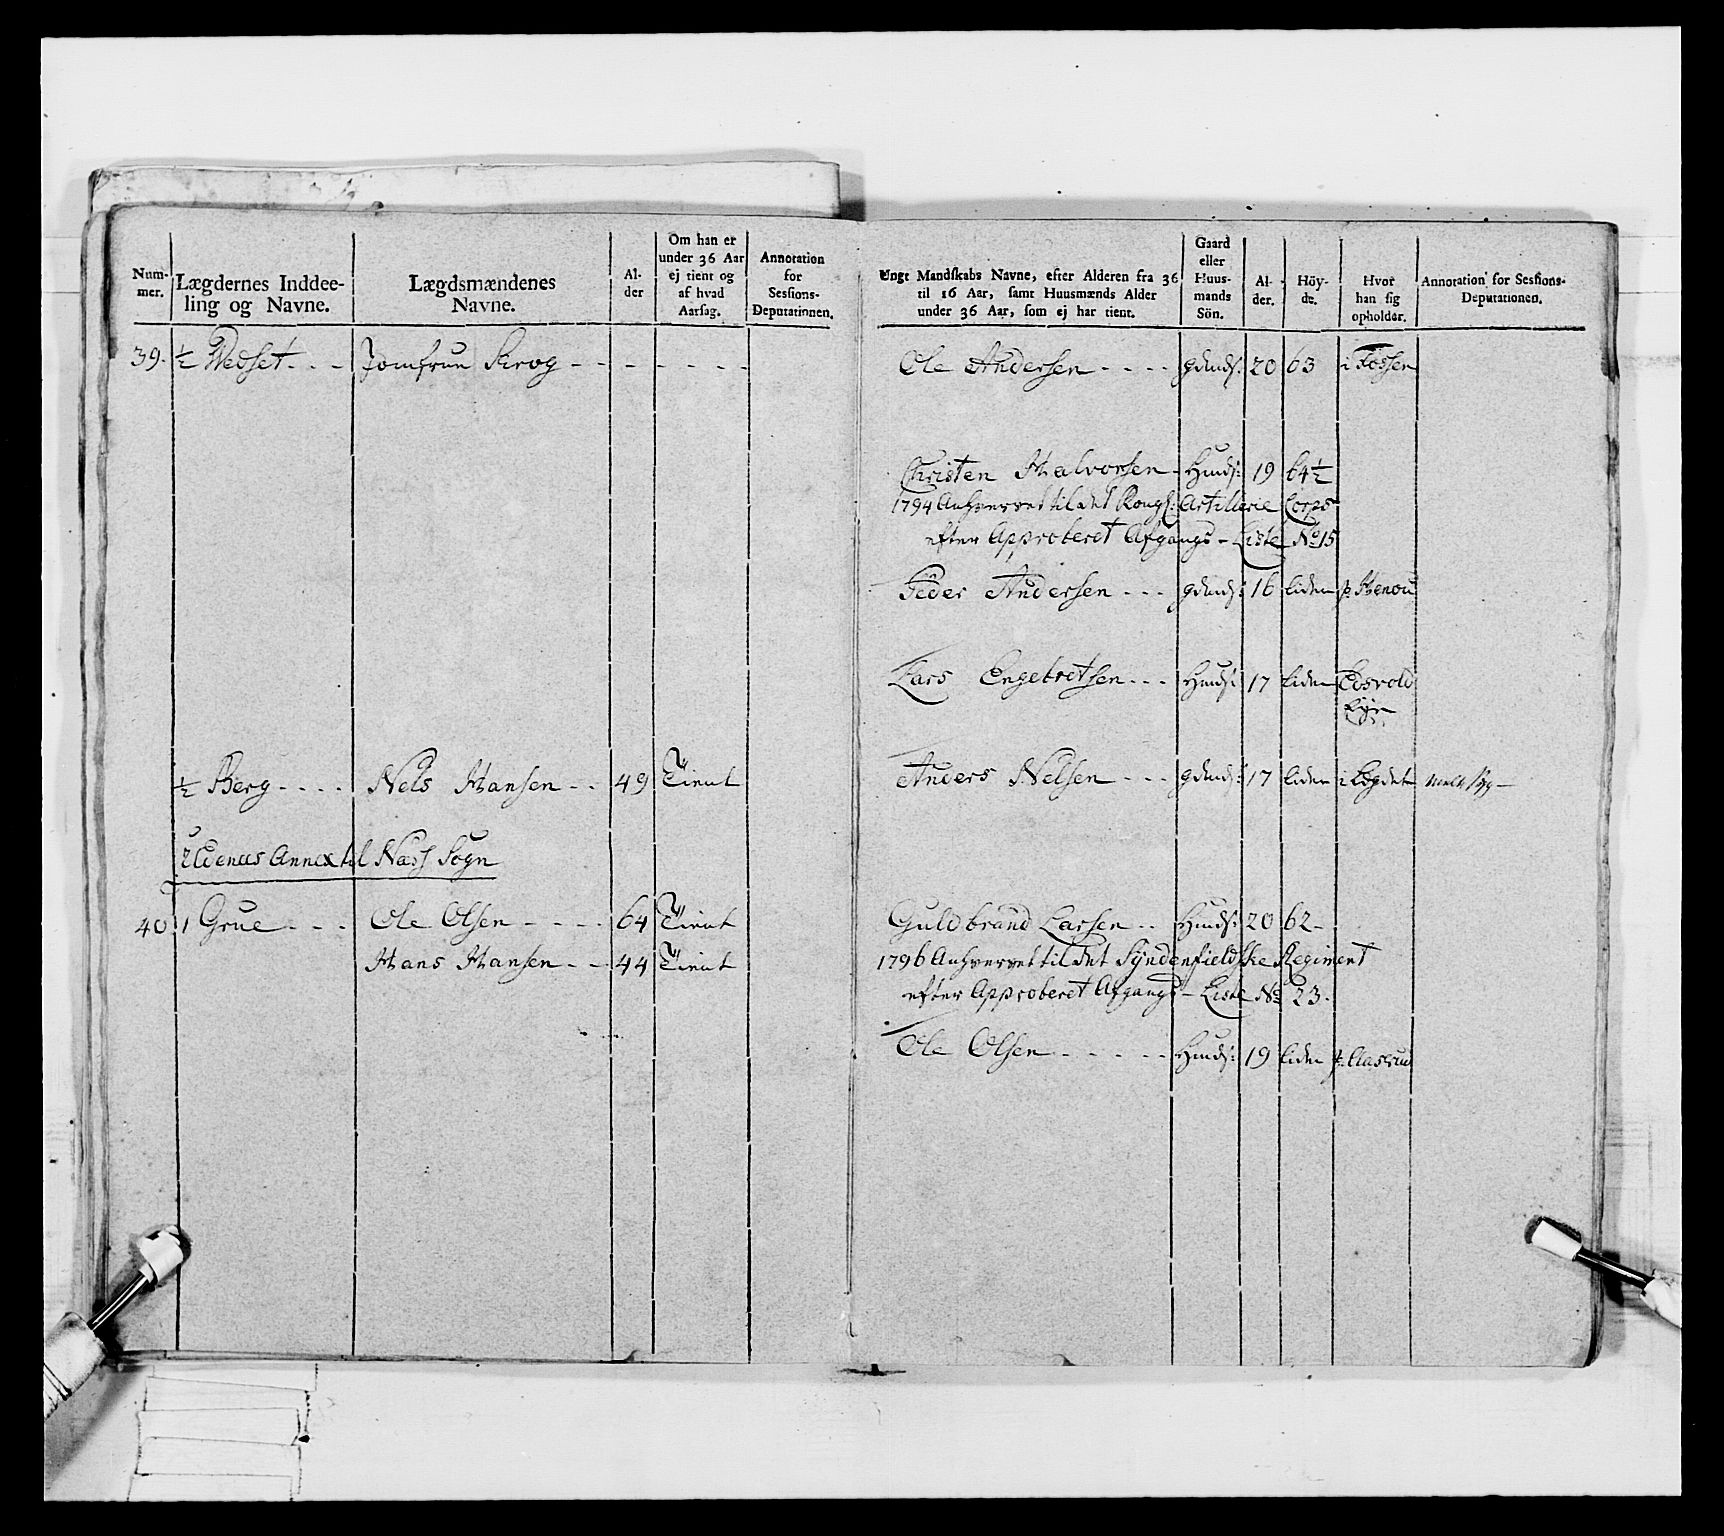 Num-
mer.
Lægdernes Inddee-
ling og Navne.
Lægdsmændenes
Navne.
Al-
der
Om han er
under 36 Aar
ej tient og
af hvad
Aarsag.
Annotation
for
Sessions-
Deputationen.
39. ½ Wedset - - - Jomfrue Krog - - - - - - -
½ Berg - - - - Nels Hansen - - 49 Tient
Udenes Annex til Næss Sogn
40 1 Grue - - - Ole Olsen - - - - 64 Tient
Hans Hansen - - 44 Tient
Ungt Mandskabs Navne, efter Alderen fra 36
til 16 Aar, samt Huusmænds Alder
under 36 Aar, som ej har tient.
Gaard
eller
Huus-
mands
Sön.
Al-
der.
Höy-
de.
Hvor
han sig
opholder.
Annotation for Sessions-
Deputationen.
Ole Andersen - - - - gdmds: 20 63 i Fossen
Christen Halvorsen - Hmds: 19 64½
1794 Anhvervet til det Kongl: Artillerie Corps
efter Approberet Afgangs - Liste No 15
Peder Andersen - - - gdmds: 16 liden p. Henou
Lars Engebretsen - - - Hmds: 17 liden Edsvold
Anders Nelsen - - - gdmds: 17 liden i Lægdet
Guldbrand Larsen - - Hmds: 20 62 -
1796 Anhvervet til det Syndenfieldske Regiment
efter Approberet Afgangs - Liste No 23.
Ole Olsen - - - - - Hmds: 19 liden p. Aasrud